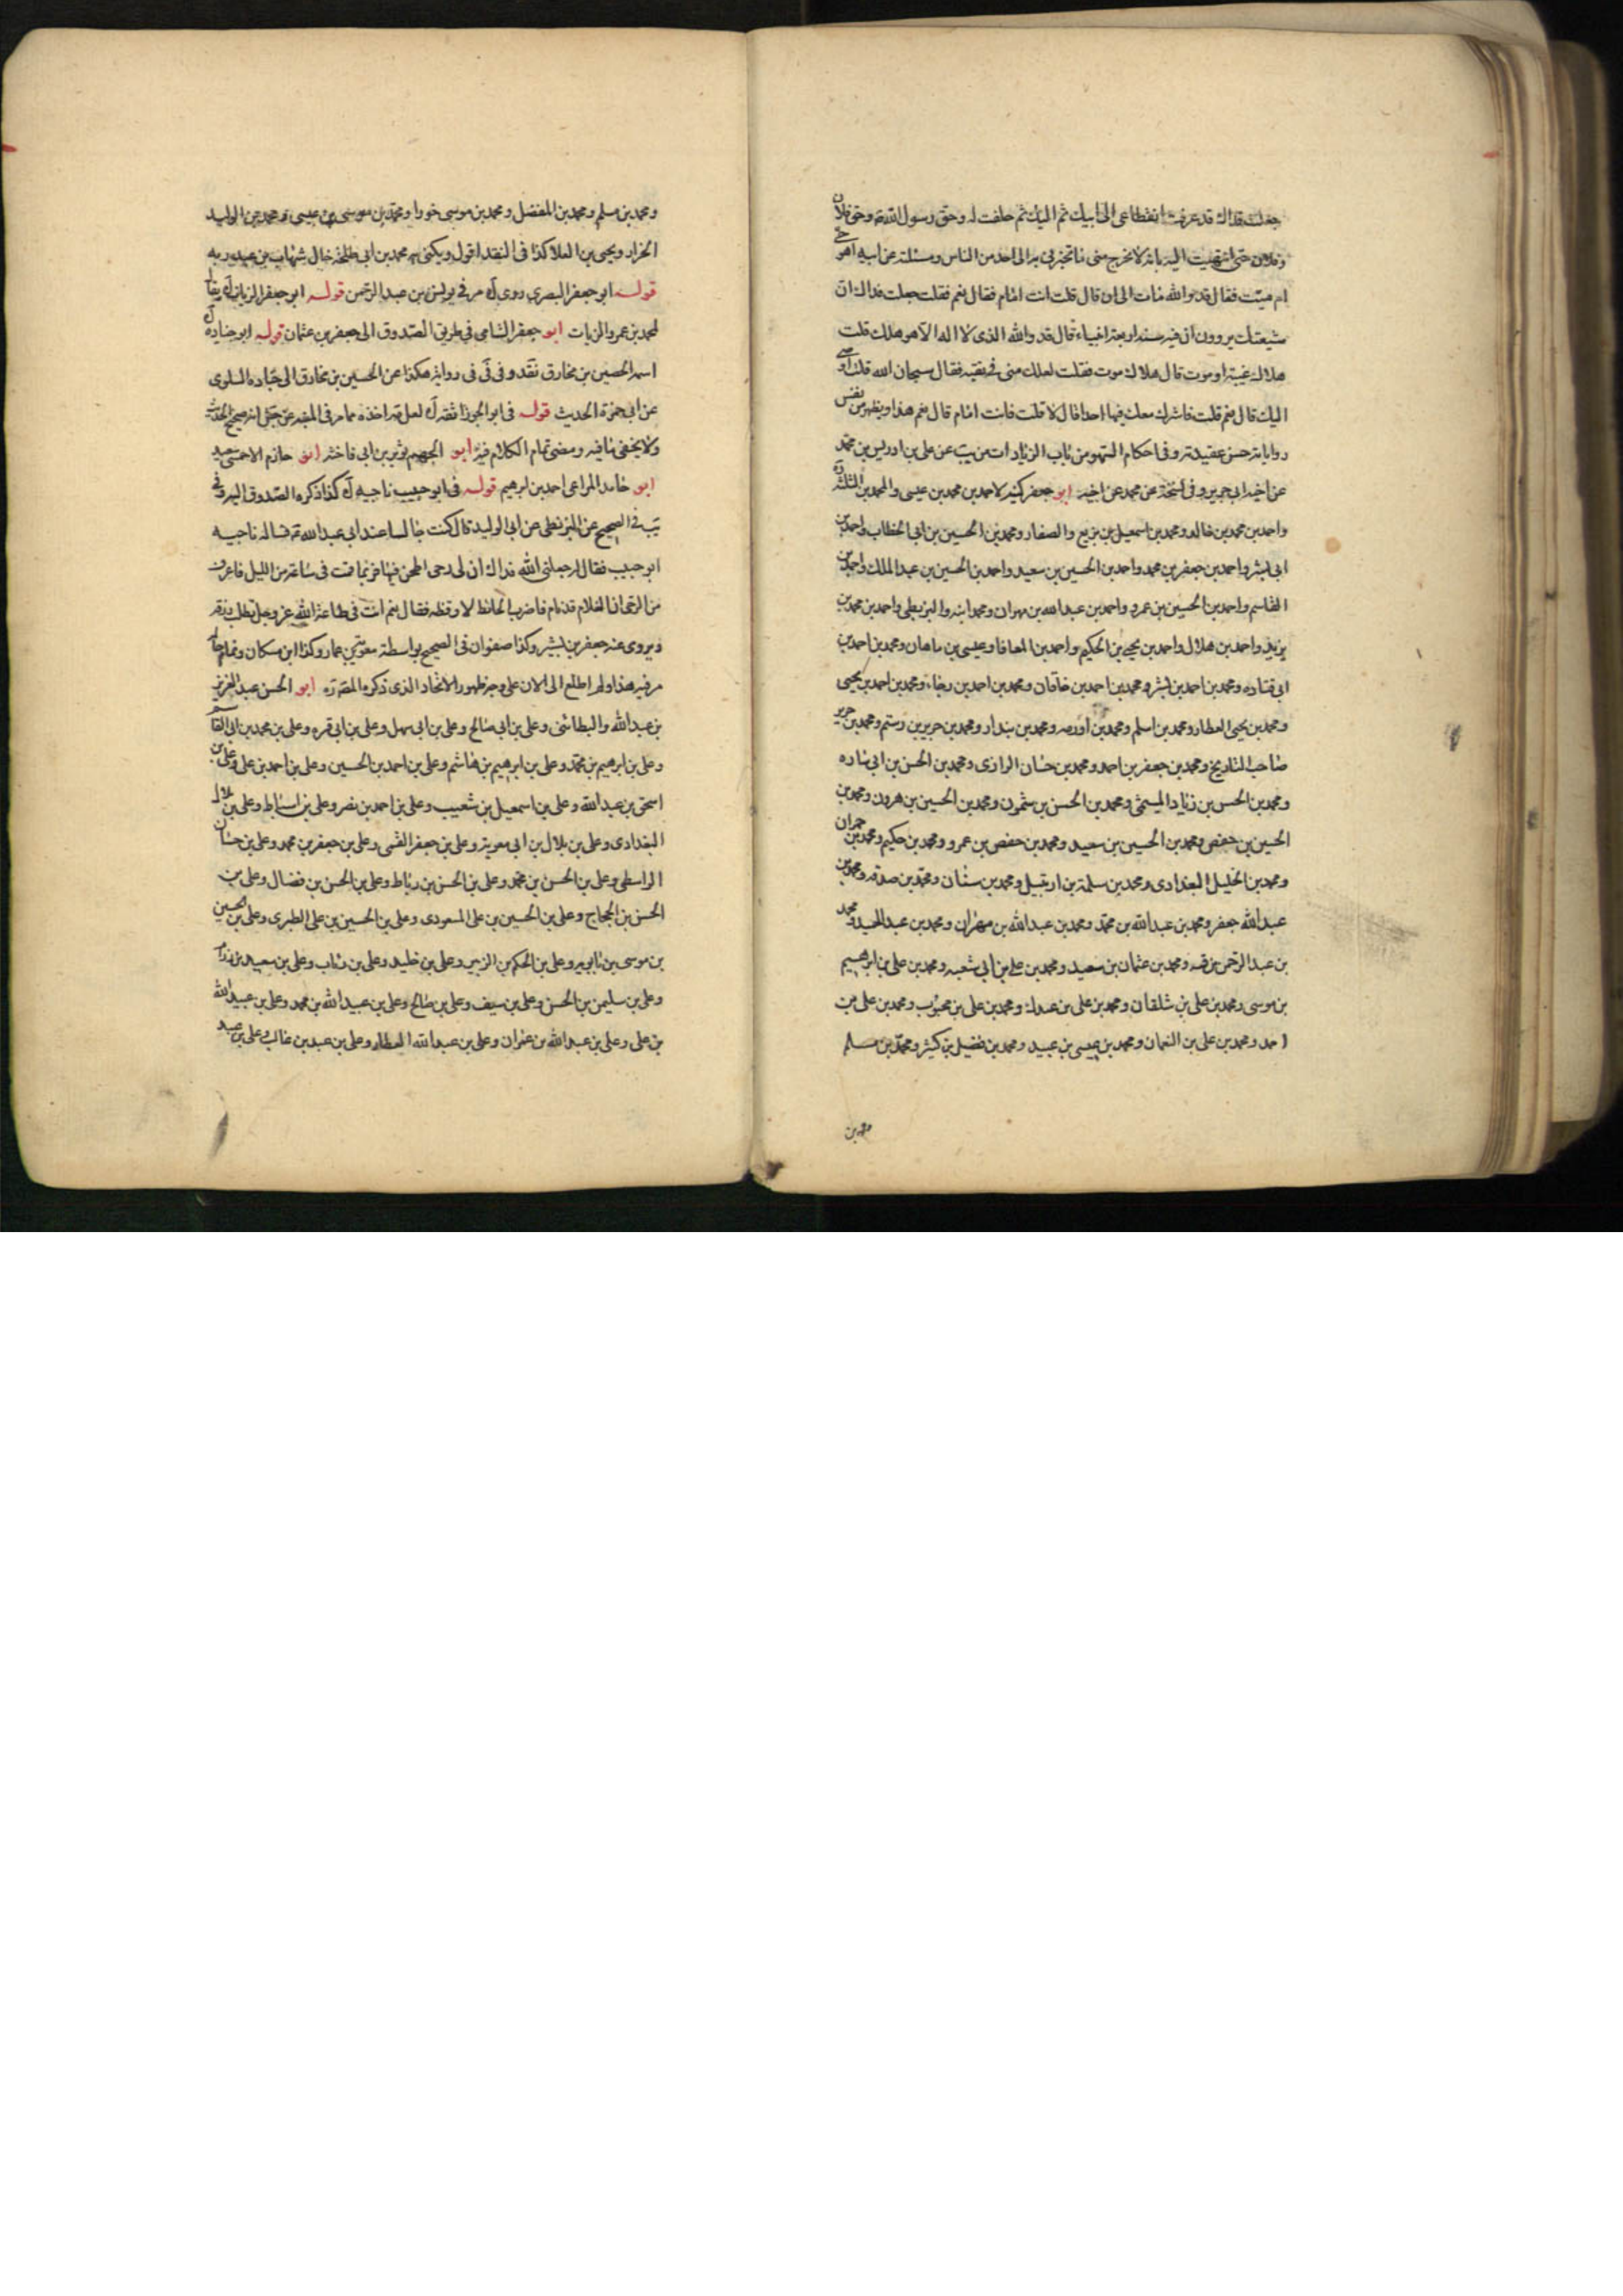 جعلت فداك قد عرفت انقطاعى الى ابيك ثم اليك ثم حلفت له وحق رسول الله ص وحق فلان
وفلان حتى انتهيت اليه بانه لا يخرج منى ما تخبرنى به الى احد من الناس وسئلته عن ابيه احى هو
ام ميت فقال قد والله مات الى ان قال قلت فانت امام فقال نعم فقلت جعلت فداك ان
شيعتك يروون ان فيه سنة اربعة انبياء قال قد والله الذى لا اله الا هو هلك قلت
هلاك غيبة او موت قال هلاك موت فقلت لعلك منى فى تقية فقال سبحان الله قلت اوصى
اليك قال نعم قلت فاشرك معك فيها احدا قال لا قلت فانت امام قال نعم هذا ويظهر من نفس
رواياته حسن عقيدته وفى احكام السهو من باب الزيادات من يب عن على بن ادريس بن محمد
عن اخيه ابى جرير وفى نسخة عن محمد عن اخيه ابو جعفر كنية لاحمد بن محمد بن عيسى والمحمدين الثلثة
واحمد بن محمد بن خالد ومحمد بن اسمعيل بن بزيع والصفار ومحمد بن الحسين بن ابى الخطاب واحمد بن
ابى بشر واحمد بن جعفر بن محمد واحمد بن الحسين بن سعيد واحمد بن الحسين بن عبد الملك واحمد بن
القاسم واحمد بن الحسين بن عمرو واحمد بن عبد الله بن مهران ومحمد ابنه والبزنطى واحمد بن محمد بن
يزيد واحمد بن هلال واحمد بن يحيى بن الحكيم واحمد بن المعافا وعيسى بن ماهان ومحمد بن احمد بن
ابى قتاده ومحمد بن احمد بن بشر ومحمد بن احمد بن خاقان ومحمد بن احمد بن رجاء ومحمد بن احمد بن يحيى
ومحمد بن يحيى العطار ومحمد بن اسلم ومحمد بن اورمه ومحمد بن بندار ومحمد بن جرير بن رستم ومحمد بن جرير
صاحب التاريخ ومحمد بن جعفر بن احمد ومحمد بن حسان الرازى ومحمد بن الحسن بن ابى ساره
ومحمد بن الحسن بن زياد الميثمى ومحمد بن الحسن بن شمون ومحمد بن الحسين بن هرون ومحمد بن
الحسين بن حفص ومحمد بن الحسين بن سعيد ومحمد بن حفص بن عمرو ومحمد بن حكيم ومحمد بن حمران
ومحمد بن الخليل البغدادى ومحمد بن سلمة بن ارتبيل ومحمد بن سنان ومحمد بن صدقه ومحمد بن
عبد الله جعفر ومحمد بن عبد الله بن محمد ومحمد بن عبد الله بن مهران ومحمد بن عبد الحميد ومحمد
بن عبد الرحمن بن قبه ومحمد بن عثمان بن سعيد ومحمد بن على بن ابى شعبه ومحمد بن على بن ابرهيم
بن موسى ومحمد بن على بن شلمغان ومحمد بن على بن عبدك ومحمد بن على بن محبوب ومحمد بن على بن
احمد ومحمد بن على بن النعمان ومحمد بن عيسى بن عبيد ومحمد بن فضيل بن كثير ومحمد بن مسلم
ومحمد بن
ومحمد بن مسلم ومحمد بن المفضل ومحمد بن موسى خورا ومحمد بن موسى بن عيسى ومحمد بن الوليد
الخزاز ويحيى بن العلا كذا فى النقد اقول ويكنى به محمد بن ابى طلحة خال شهاب بن عبد ربه
قوله ابو جعفر البصرى روى مر فى يونس بن عبد الرحمن قوله ابو جعفر الزيات يقال
لمحمد بن عمرو الزيات ابو جعفر الشامى فى طريق الصدوق الى جعفر بن عثمان قوله ابو جناده
اسمه الحصين بن مخارق نقد وفى فى رواية هكذا عن الحسين بن مخارق الى جناده السلولى
عن ابى حمزة الحديث قوله فى ابو الجوزا ثقة لعله اخذه مما مر فى المنبه عن انه صحيح الحديث
ولا يخفى ما فيه ومضى تمام الكلام فيه ابو الجهم ثوير بن ابى فاخته ابو حازم الاحمسى سعيد
ابو حامد المراغى احمد بن ابرهيم قوله فى ابو حبيب ناجيه كذا ذكره الصدوق اليه وفى
يب فى الصحيح عن البزنطى عن ابى الوليد قال كنت جالسا عند ابى عبد الله ع فساله ناجيه
ابو حبيب فقال له جعلنى الله فداك ان لى رحى اطحن فيها فربما قمت فى ساعة من الليل فاعرف
من الرحى ان الغلام قد نام فاضرب الحائط لاوقظه فقال نعم انت فى طاعة الله عز وجل تطلب رزقه
ويروى عنه جعفر بن بشير وكذا صفوان فى الصحيح بواسطة معوية بن عمار وكذا ابن مسكان وتمام
مر فيه هذا ولم اطلع الى الان على وجه ظهور الاتحاد الذى ذكره المص ره ابو الحسن عبد العزيز
بن عبد الله والبطائنى وعلى بن ابى صالح وعلى بن ابى سهل وعلى بن ابى قره وعلى بن محمد بن ابى القاسم
وعلى بن ابرهيم بن محمد وعلى بن ابرهيم بن هاشم وعلى بن احمد بن الحسين وعلى بن احمد بن على وعلى بن
اسحق بن عبد الله وعلى بن اسمعيل بن شعيب وعلى بن احمد بن نصر وعلى بن اسباط وعلى بن بلال
البغدادى وعلى بن بلال بن ابى معوية وعلى بن جعفر القمى وعلى بن جعفر بن محمد وعلى بن حسان
الواسطى وعلى بن الحسن بن محمد وعلى بن الحسن بن رباط وعلى بن الحسن بن فضال وعلى بن
الحسن بن الحجاج وعلى بن الحسين بن على المسعودى وعلى بن الحسين بن على الطبرى وعلى بن الحسين
بن موسى بن بابويه وعلى بن الحكم بن الزبير وعلى بن خليد وعلى بن رئاب وعلى بن سعيد بن رزام
وعلى بن سليمن بن الحسن وعلى بن سيف وعلى بن صالح وعلى بن عبيد الله بن محمد وعلى بن عبيد الله
بن على وعلى بن عبد الله بن عمران وعلى بن عبد الله العطار وعلى بن عبد بن غالب وعلى بن عبيد